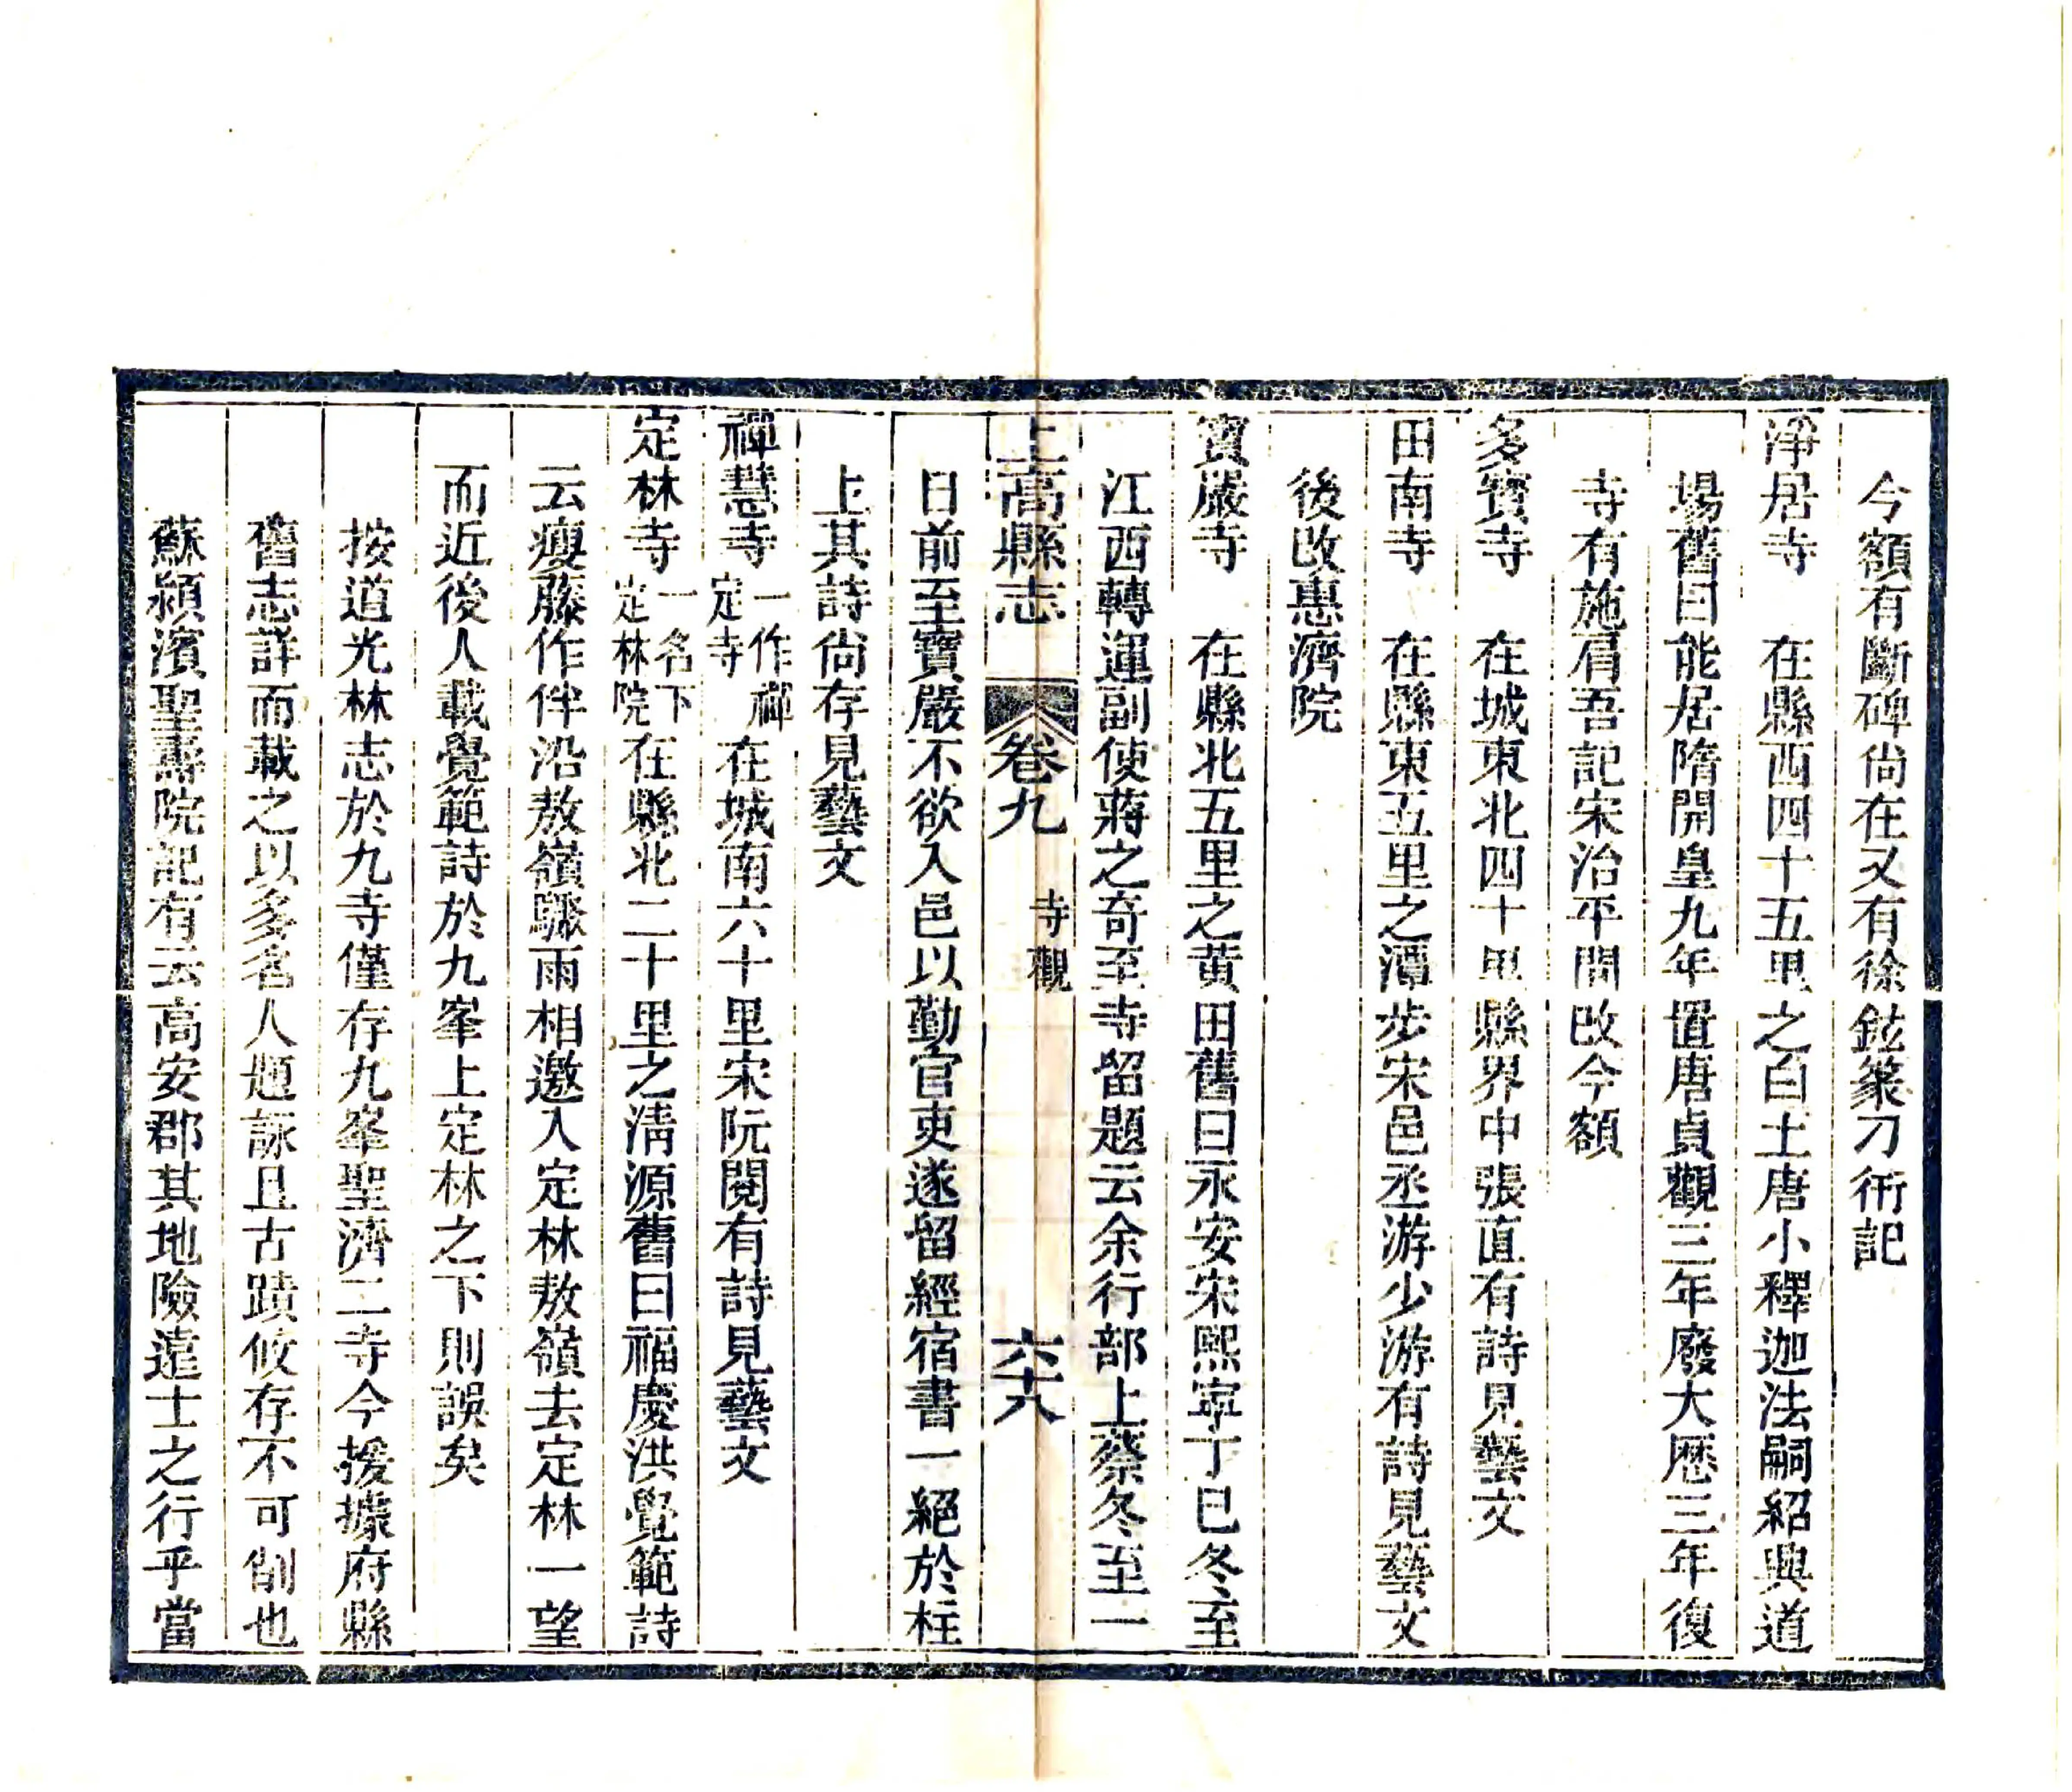 今額有斷碑尙在又有徐鉉篆刀術記
淨居寺　在縣西四十五里之白土唐小釋迦法嗣紹興道
場舊曰能居隋開皇九年置唐貞觀三年廢大歷三年復
寺有施肩吾記宋治平間改今額
多寶寺　在城東北四十里縣界中張直有詩見藝文
田南寺　在縣東五里之潭步宋邑丞游少游有詩見藝文
後改惠濟院
寶嚴寺　在縣北五里之黃田舊曰永安宋熙寧丁巳冬至
江西轉運副使蔣之奇至寺留題云余行部上蔡冬至一
日前至寶嚴不欲入邑以勤官吏遂留經宿書一絕於柱
上其詩尙存見藝文
上高縣志　卷九　寺觀　六十八
禪慧寺一作禪定寺在城南六十里宋阮閱有詩見藝文
定林寺一名下定林院在縣北二十里之淸源舊曰福慶洪覺範詩
云瘦藤作伴沿敖嶺驟雨相邀入定林敖嶺去定林一望
而近後人載覺範詩於九峯上定林之下則誤矣
按道光林志於九寺僅存九峯聖濟二寺今援據府縣
舊志詳而載之以多名人題詠且古蹟攸存不可削也
蘇潁濱聖壽院記有云高安郡其地險遠士之行乎當